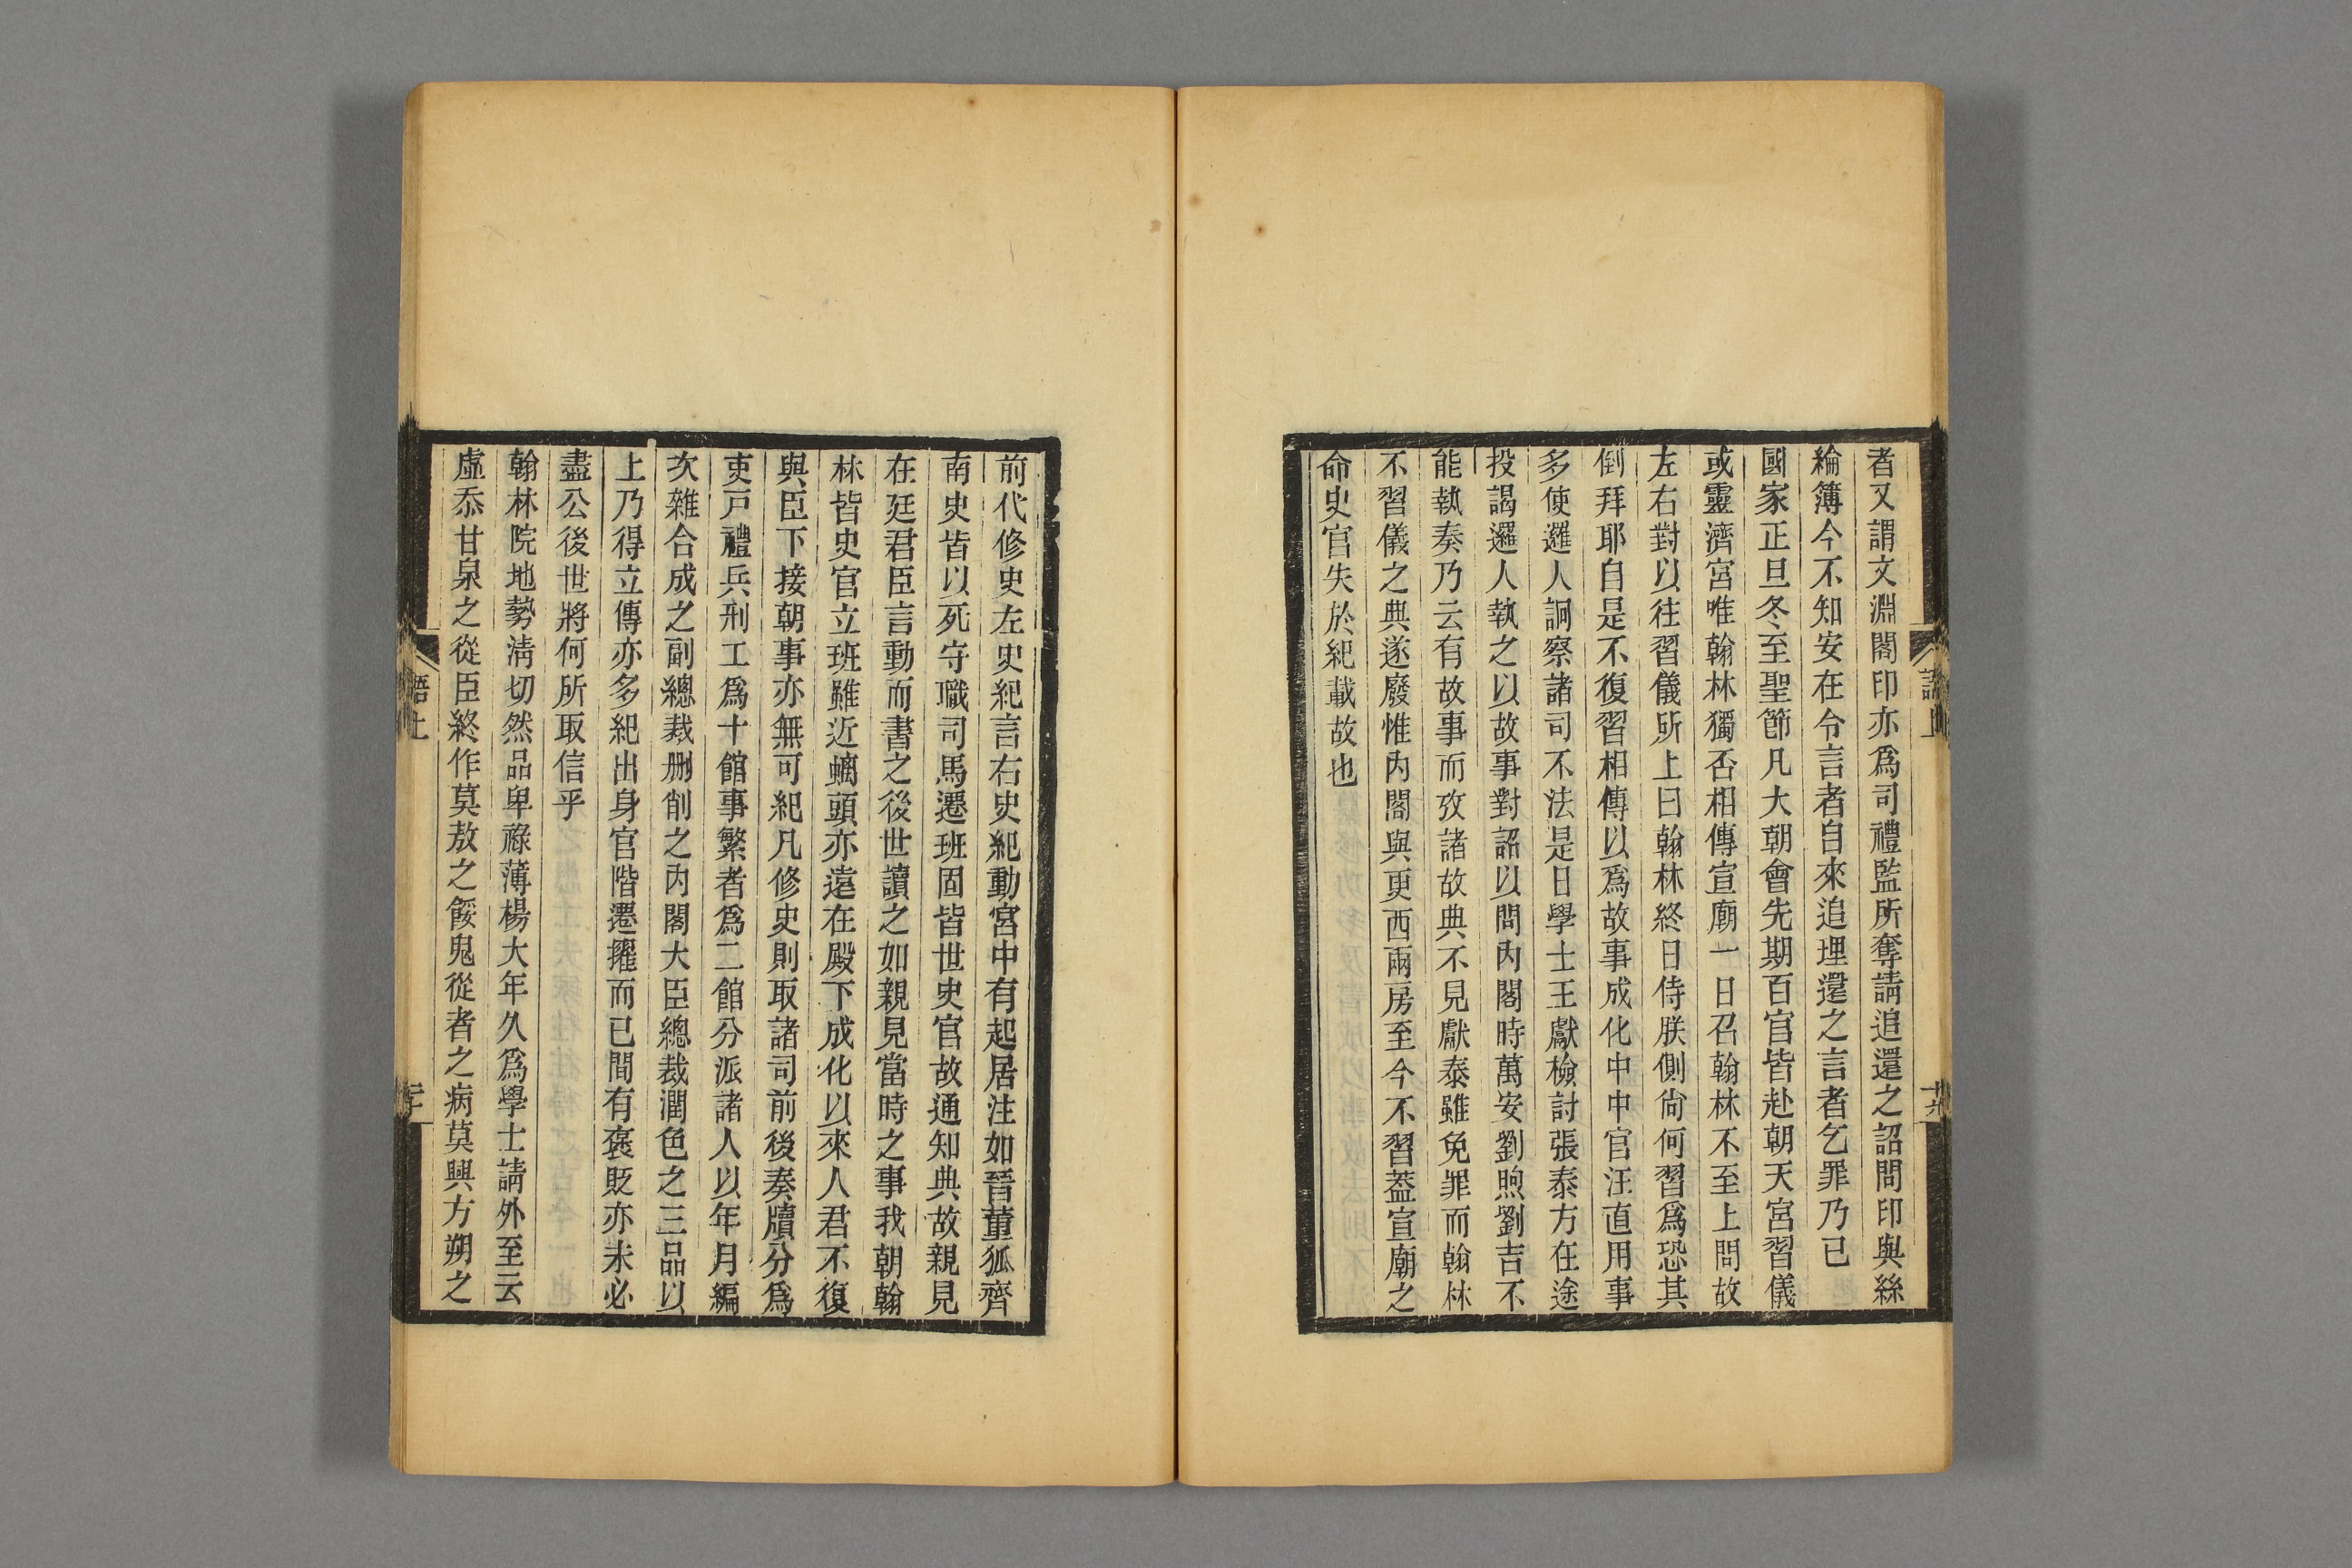 者又謂文淵閣印亦爲司禮監所奪請追還之詔問印與絲
綸簿今不知安在令言者自來追理還之言者乞罪乃已
國家正旦冬至聖節凡大朝會先期百官皆赴朝天宮習儀
或靈濟宮唯翰林獨否相傳宣廟一日召翰林不至上問故
左右對以往習儀所上曰翰林終日侍朕側尙何習爲恐其
倒拜耶自是不復習相傳以爲故事成化中中官汪直用事
多使邏人詗察諸司不法是日學士王獻檢討張泰方在途
投謁邏人執之以故事對詔以問內閣時萬安劉煦劉吉不
能執奏乃云有故事而攷諸故典不見獻泰雖免罪而翰林
不習儀之典遂廢惟內閣與更西兩房至今不習葢宣廟之
命史官失於紀載故也
語上
十六
前代修史左史紀言右史紀動宮中有起居注如晉董狐齊
南史皆以死守職司馬遷班固皆世史官故通知典故親見
在廷君臣言動而書之後世讀之如親見當時之事我朝翰
林皆史官立班雖近螭頭亦遠在殿下成化以來人君不復
與臣下接朝事亦無可紀凡修史則取諸司前後奏牘分爲
吏戶禮兵刑工爲十館事繁者爲二館分派諸人以年月編
次雜合成之副總裁删削之內閣大臣總裁潤色之三品以
上乃得立傳亦多紀出身官階遷擢而已間有褒貶亦未必
盡公後世將何所取信乎
翰林院地勢淸切然品卑祿薄楊大年久爲學士請外至云
虛忝甘泉之從臣終作莫敖之餒鬼從者之病莫興方朔之
語上